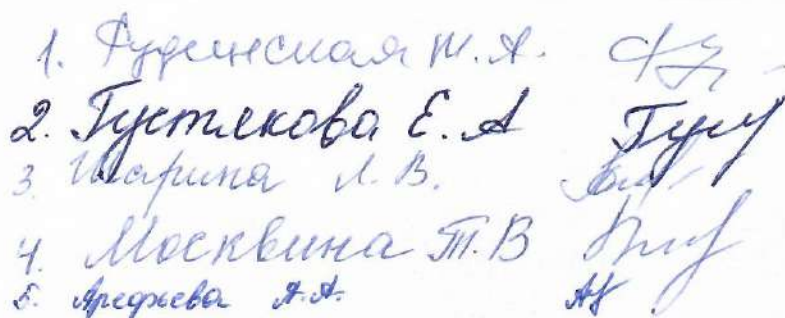 1. Рудинская Н.А.
2. Густякова Е.А Гус
3. Шарина Л.В.
4. Москвина Т.В
5. Арефьева А.А.